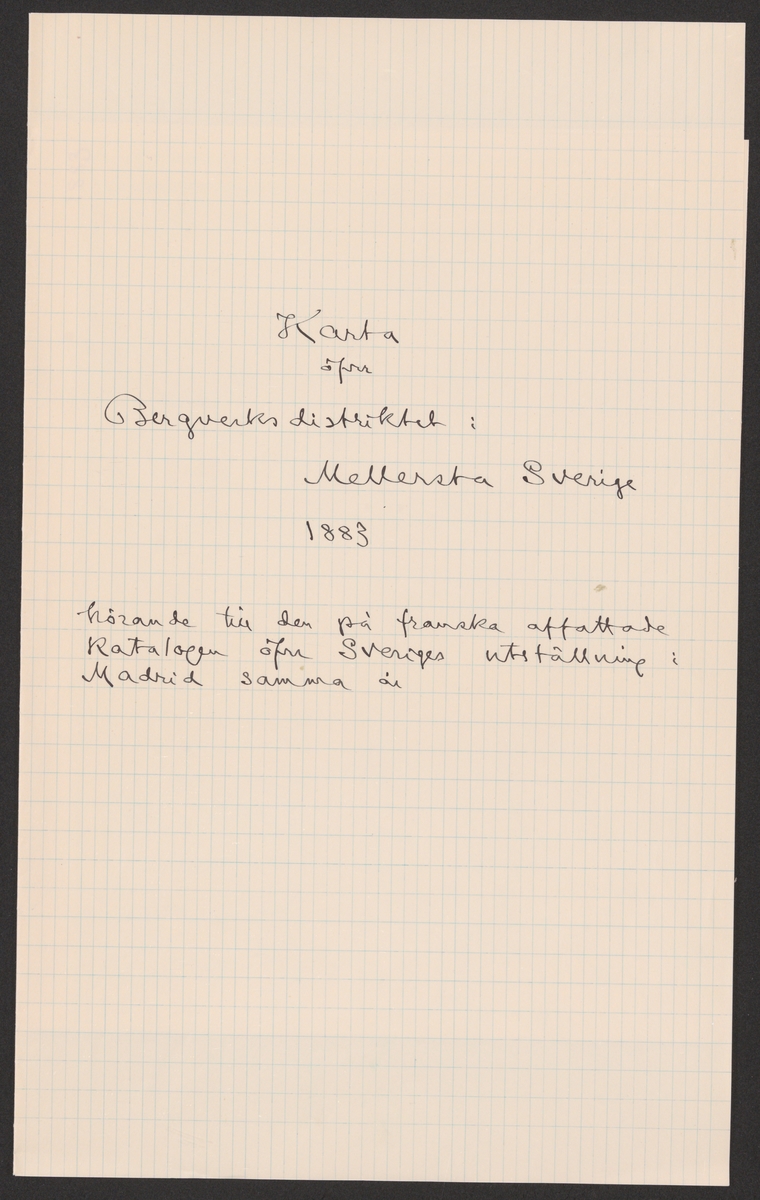 Karta
öfver
Bergverksdistriktet i
Mellersta Sverige
1883
hörande till den på franska affattade
Katalogen öfver Sveriges utställning i
Madrid samma år